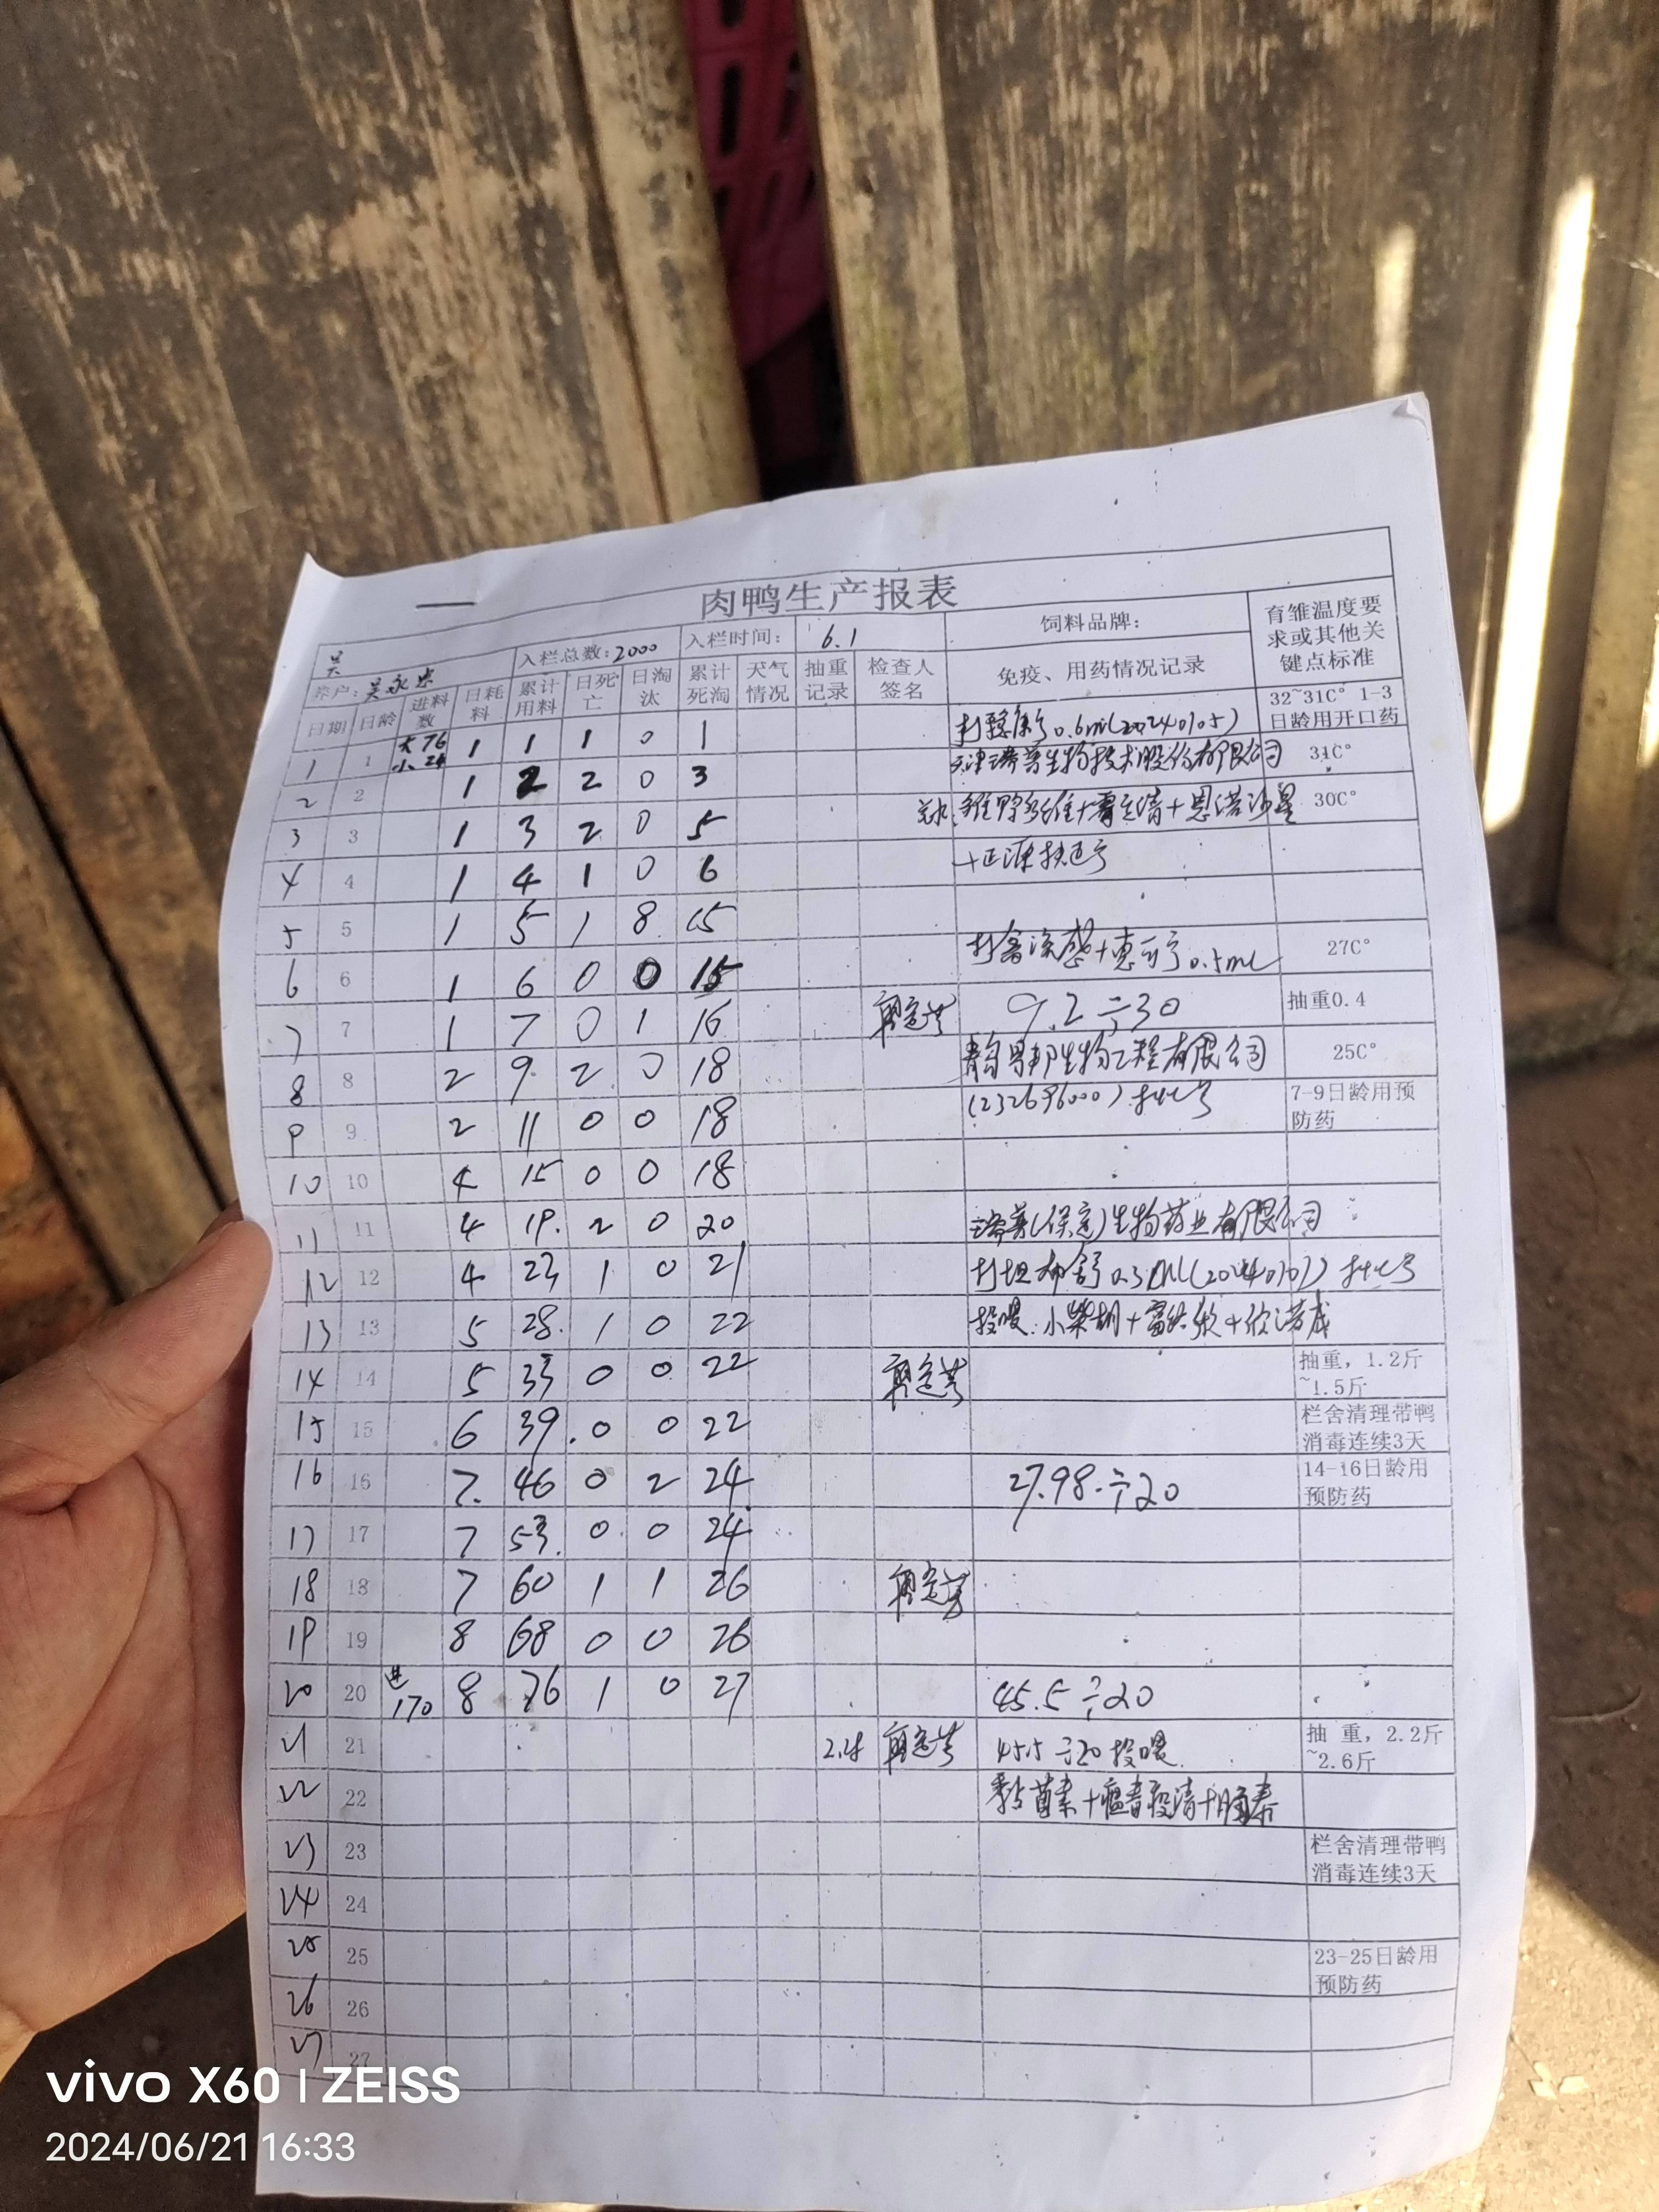 肉鸭生产报表
吴
养户: 吴永 入栏总数: 2000 入栏时间: 6.1 饲料品牌: 育雏温度要求或其他关键点标准
日期 日龄 进料数 日耗料 累计用料 日死亡 日淘汰 累计死淘 天气情况 抽重记录 检查人签名 免疫、用药情况记录
1 1 大76 小24 1 1 1 0 1 0.6ml(20240105) 32~31C° 1-3日龄用开口药
2 2 1 2 2 0 3 天津瑞普生物技术股份有限公司 31C°
3 3 1 3 2 0 5 +恩诺沙星 30C°
4 4 1 4 1 0 6
5 5 1 5 1 8 15
6 6 1 6 0 0 15 打禽流感+ 0.5ml 27C°
7 7 1 7 0 1 16 9.2÷30 抽重0.4
8 8 2 9 2 0 18 青岛易邦生物工程有限公司 25C°
9 9 2 11 0 0 18 批号 7-9日龄用预防药
10 10 4 15 0 0 18
11 11 4 19 2 0 20 瑞普(保定)生物药业有限公司
12 12 4 23 1 0 21 0.3ml 批号
13 13 5 28 1 0 22 投喂: 小柴胡+
14 14 5 33 0 0 22 抽重，1.2斤~1.5斤
15 15 6 39 0 0 22 栏舍清理带鸭消毒连续3天
16 16 7 46 0 2 24 27.98÷20 14-16日龄用预防药
17 17 7 53 0 0 24
18 18 7 60 1 1 26
19 19 8 68 0 0 26
20 20 进170 8 76 1 0 27 45.5÷20
21 21 45.5÷20 投喂 抽 重，2.2斤~2.6斤
22 22 黏菌素+
23 23 栏舍清理带鸭消毒连续3天
24 24
25 25 23-25日龄用预防药
26 26
27 27
vivo X60 | ZEISS
2024/06/21 16:33